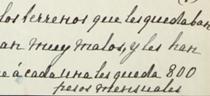 los terrenos que les quedaban
an muy malos, y les han
e á cada una les queda 800
pesos mensuales